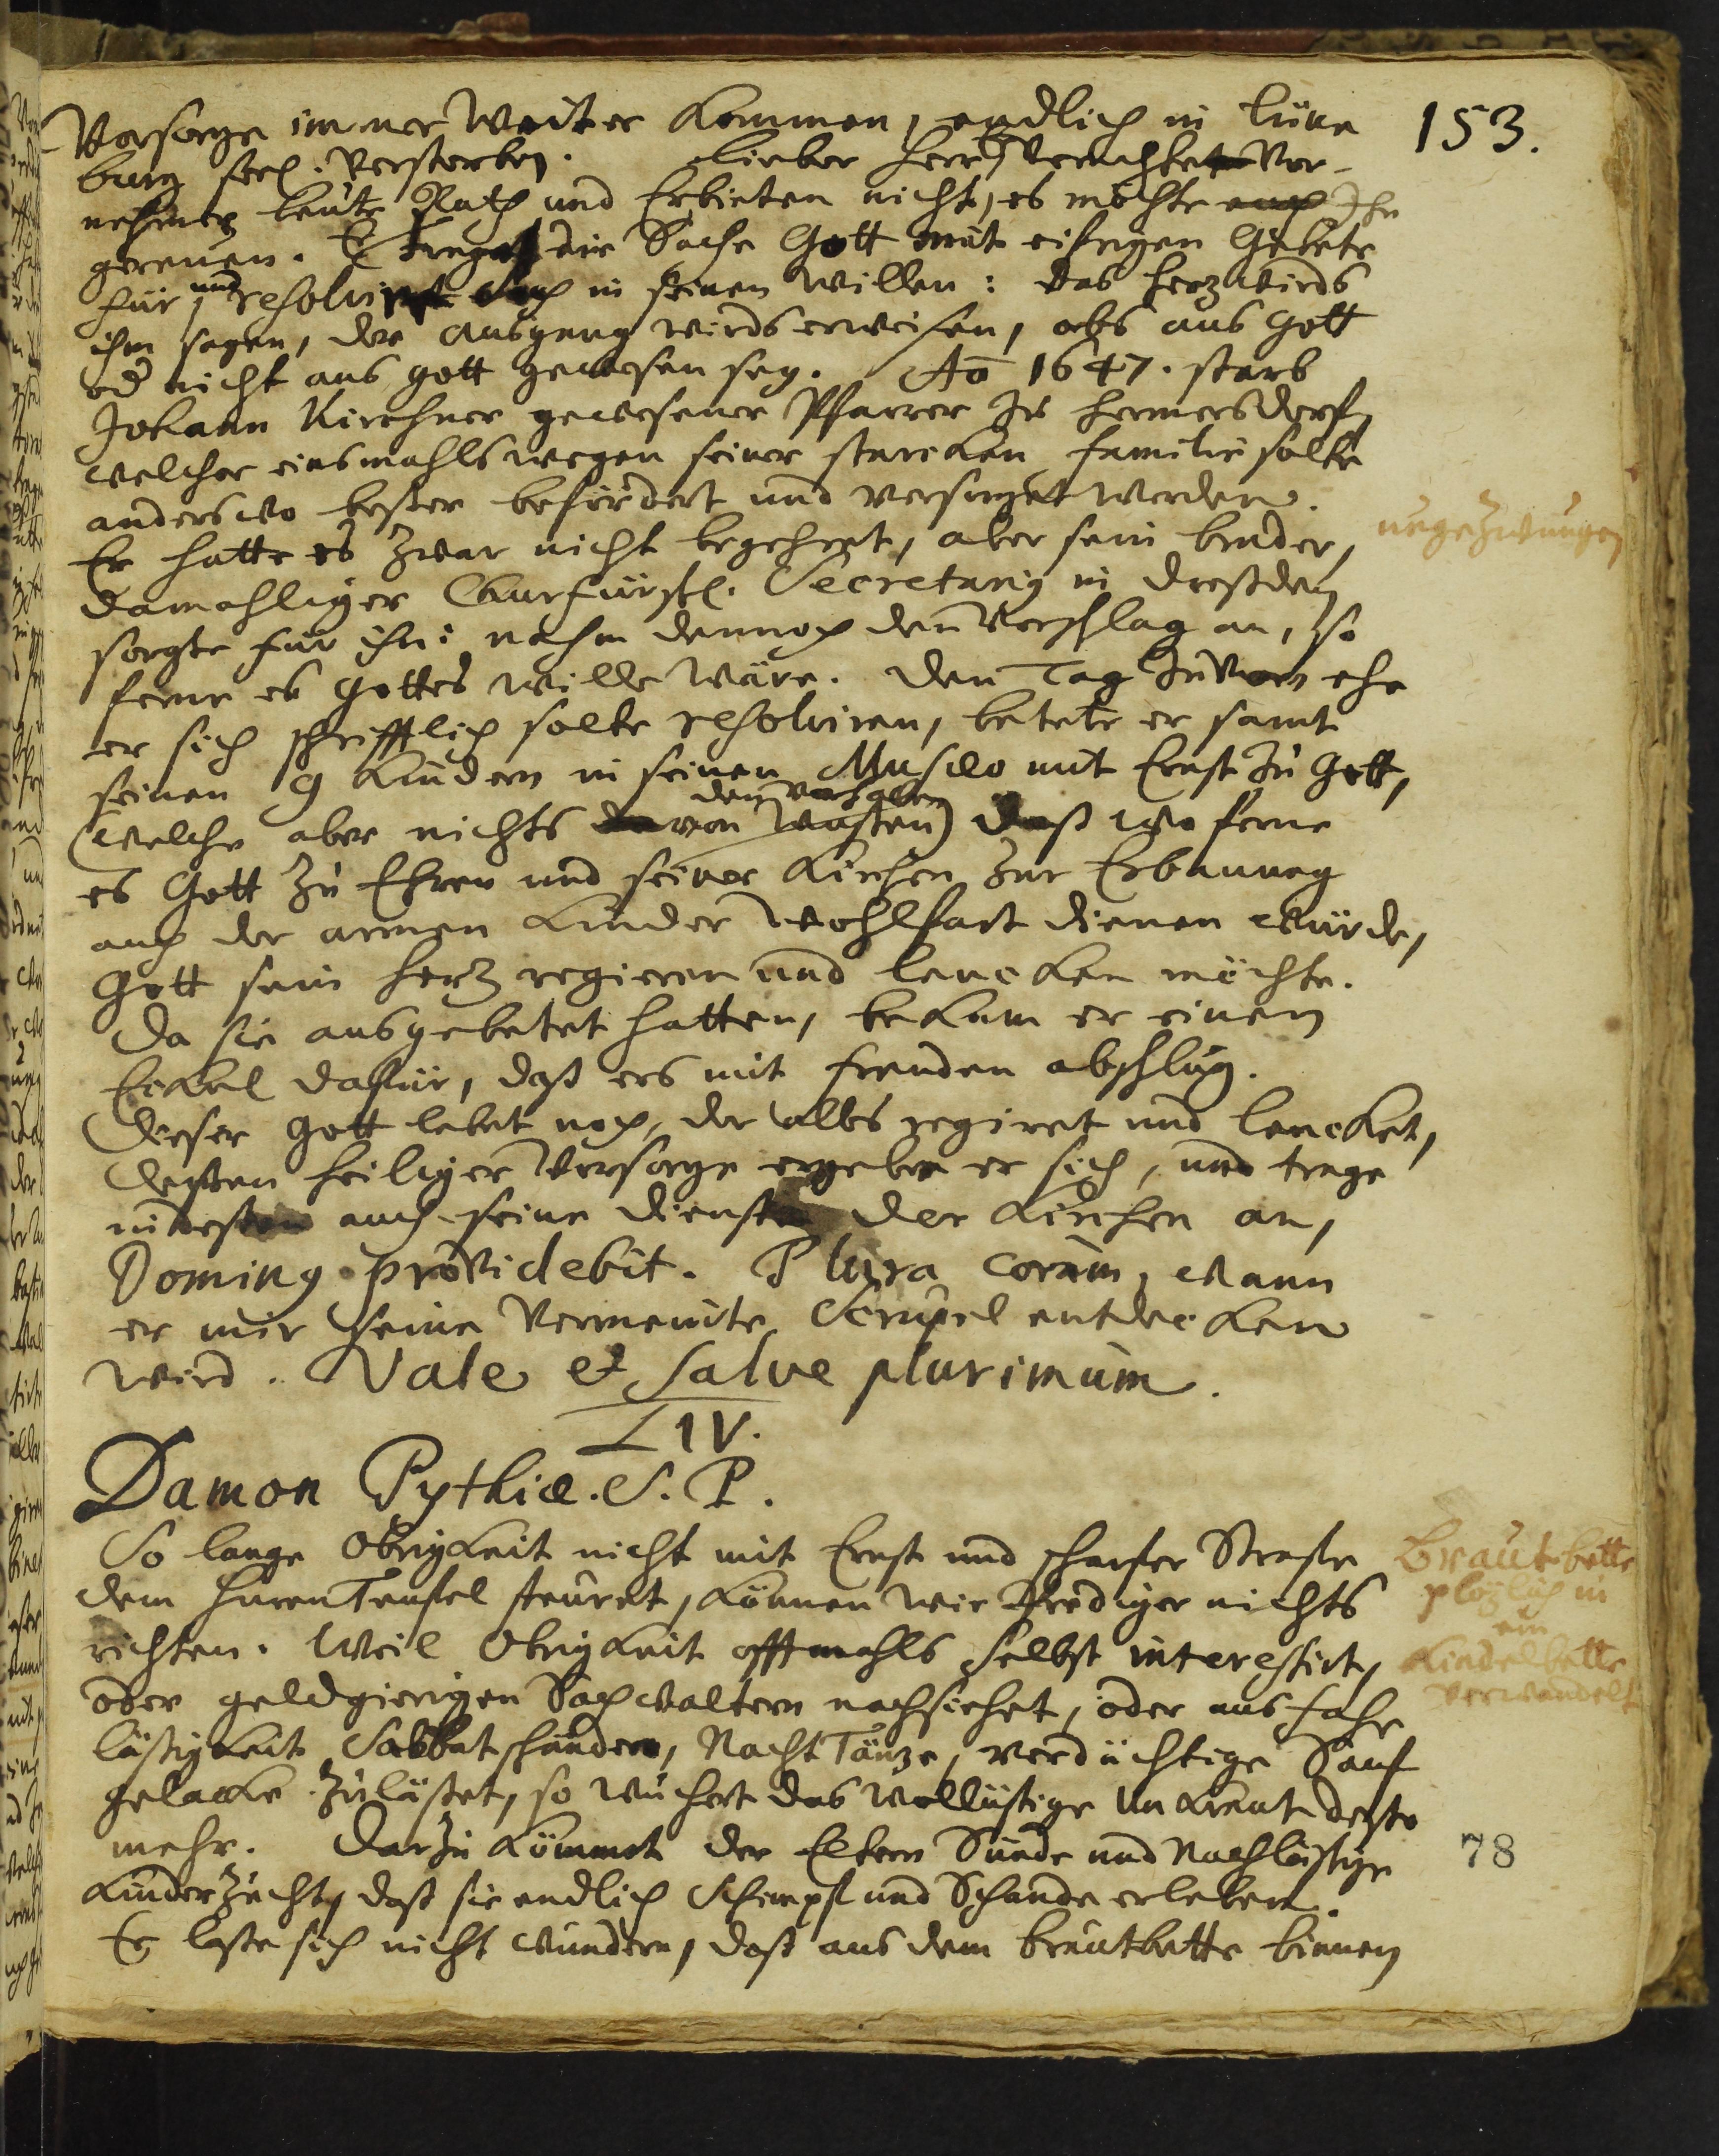 153.
Vorsorge immer weiter kommen, endlich in Lüne
burg seel. verstorben. Lieber Herr, verachtet Vor-
nehmer Leute Rath und Erbieten nicht, es möchte Ihn
gereuen. Er trage die Sache Gott mit eifrigen Gebete
für, und resolvire in seinen willen: das Herz wirds
ihm sagen, der ausgang wirds erweisen, obs aus Gott
od nicht aus gott gewesen sey. Ao 1647. starb
Johann Kirchner gewesener Pfarrer zu Hermersdorf,
welcher einsmahls wegen seiner starcken familie solte
anderswo besser befördert und versorget werden.
ungezwungen
Er hatte es zwar nicht begehret, aber sein bruder,
damahliger Churfürstl. Secretarig in Dreßden
sorgte für ihn: nahm dennoch den Vorschlag an, so
ferne es Gottes wille wäre. Den Tag zuvorn ehe
er sich schrifftlich solte resolviren, betete er samt
seinen 9 Kindern in seinen Musaeo mit Ernst zu Gott,
(welche aber nichts von den vorhaben wusten) daß wo ferne
es Gott zu Ehren und seiner Kirchen zur Erbauung
auch der armen Kinder wohlfart dienen würde,
Gott sein Herz regieren und lencken möchte.
Da sie ausgebetet hatten, bekam er einen
Eckel dafür, daß ers mit freuden abschlug.
Dieser Gott lebet noch, der alles regiret und lencket,
dessen heiliger Vorsorge ergebe er sich, und trage
indessen auch seine dienste der Kirchen an,
Doming providebit. Plura coram, wann
er mir seine vermeinte Scrupel entdecken
wird. Vale et salve plurimum.
LIV.
Damon Pythiae. S. P.
So lange Obrigkeit nicht mit Ernst und scharfer Strafe
dem HurenTeufel steuret, können wir Prediger nichts
richten. Weil Obrigkeit offtmahls selbst interessirt,
oder geldgierigen Sachwaltern nachsiehet, oder aus fahr
läßigkeit Sabbatschänden, NachtTänze, verdächtige Sauf
gelacke zuläßet, so wuchert das wollüstige Unkraut desto
mehr. Darzu kömmet der Eltern Sünde und nachläßige
Kinderzucht, daß sie endlich Schimpf und Schande erleben.
Er laße sich nicht wundern, daß aus dem brautbette binnen
Brautbette
plözlich in
ein
Kindelbette
verwandelt
78